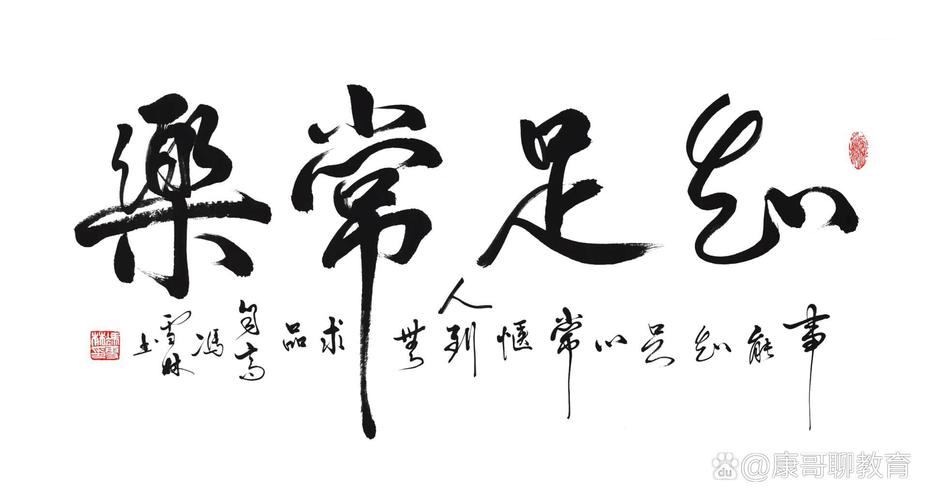 知足常樂
事能知足心常愜人到無求品自高
馮雪林书
du @康哥聊教育